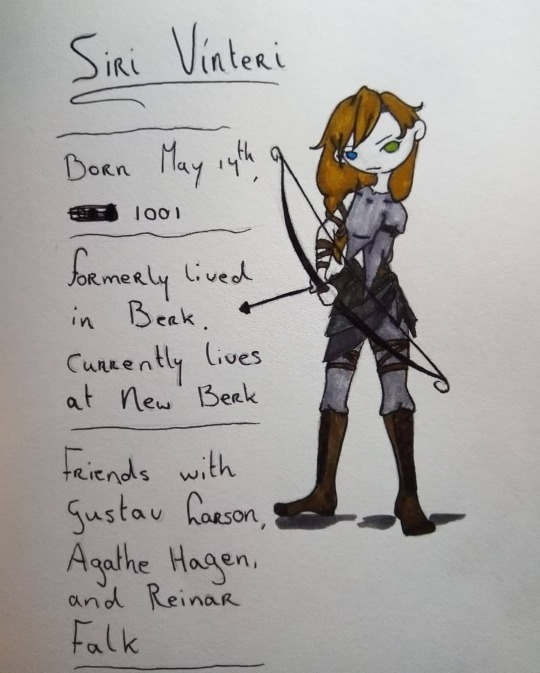 Siri Vínteri
Born May 14th,
1001
formerly lived
in Berk.
Currently lives
at New Berk
Friends with
Gustav Larson,
Agathe Hagen,
and Reinar
Falk